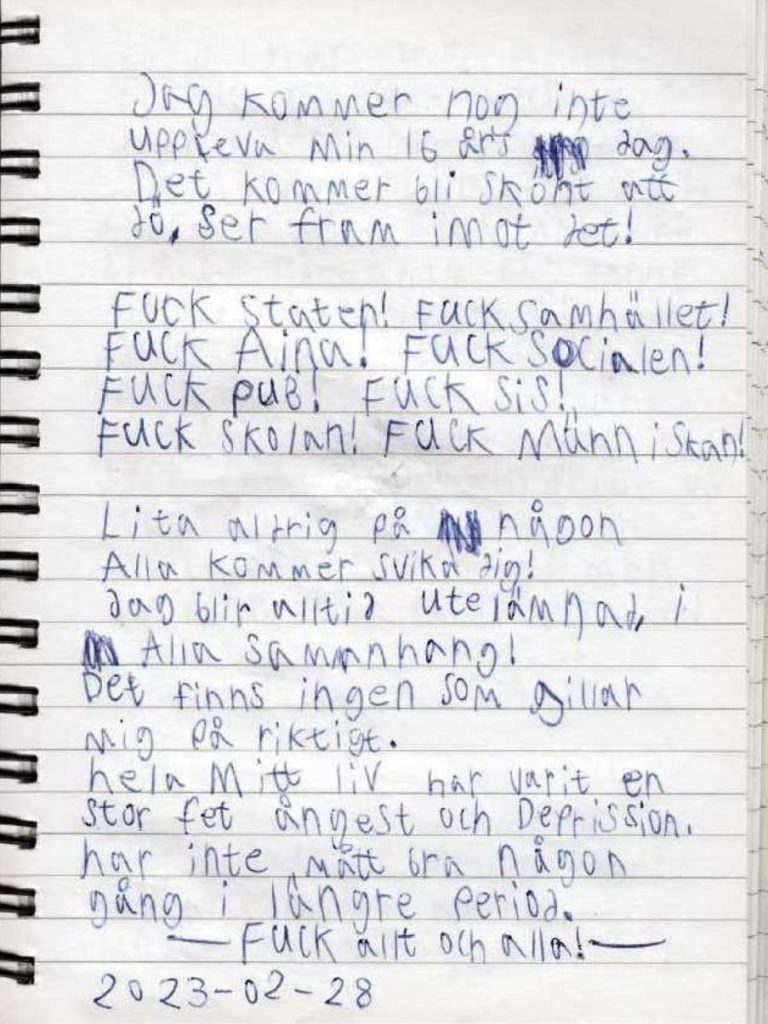 Jag kommer nog inte
uppleva min 16 års dag.
Det kommer bli skönt att
dö, ser fram imot det!
Fuck staten! Fuck samhället!
Fuck Aina! Fuck Socialen!
Fuck puB! Fuck sis!
Fuck skolan! Fuck Människan!
Lita aldrig på någon
Alla kommer svika dig!
Jag blir alltid utelämnad, i
Alla samannhang!
Det finns ingen som gillar
mig på riktigt.
hela Mitt liv har varit en
stor fet ångest och Deprission.
har inte mått bra någon
gång i längre period.
— Fuck allt och alla! —
2023-02-28